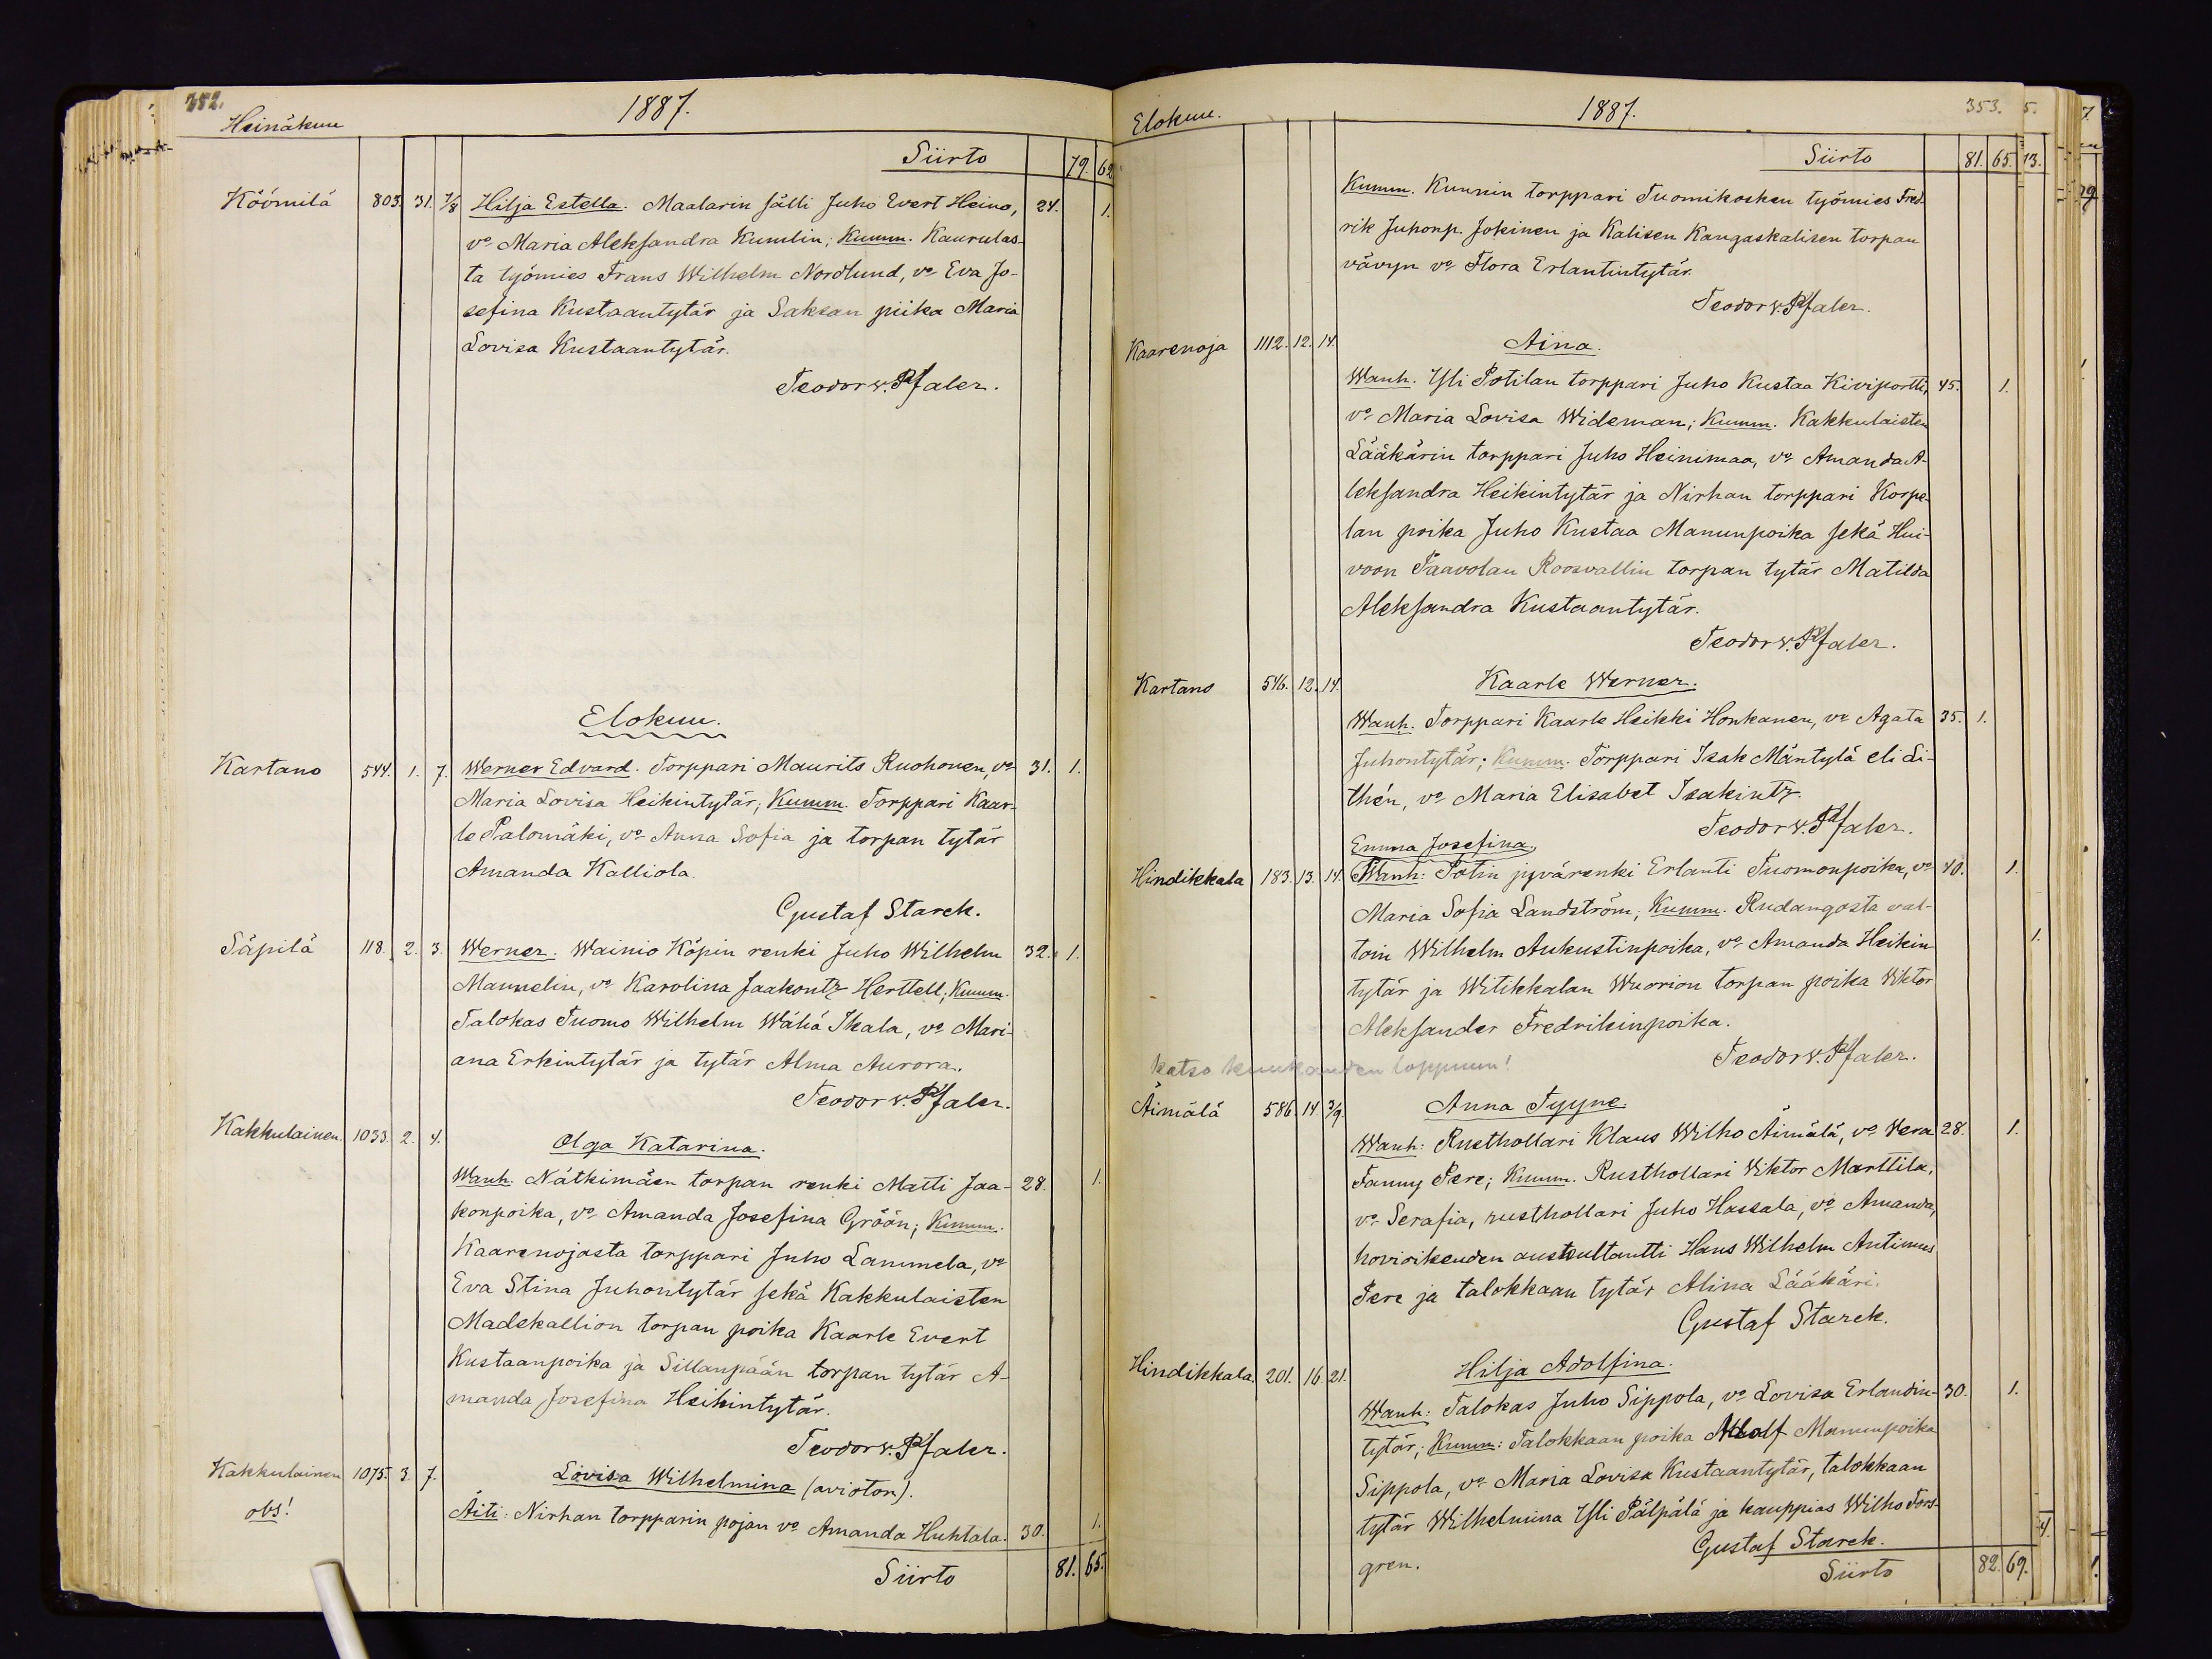 352.
Heinäkuu
1887.
Siirto 79. 62
Köömilä 803. 31. 7/8 Hilja Estella. Maalarin sälli Juho Evert Heino, 24. 1.
vo Maria Aleksandra Kumlin; Kumm. Kaurulas-
ta työmies Frans Wilhelm Nordlund, vo Eva Jo-
sefina Kustaantytär ja Saksan piika Maria
Lovisa Kustaantytär.
Teodor v. Pfaler.
Elokuu.
Kartano 544. 1. 7. Werner Edvard. Torppari Maurits Ruohonen, vo 31. 1.
Maria Lovisa Heikintytär; Kumm. Torppari Kaar-
le Palomäki, vo Anna Sofia ja torpan tytär
Amanda Kalliola.
Gustaf Starck.
Säpilä 118. 2. 3. Werner. Wainio Köpin renki Juho Wilhelm 32. 1.
Mannelin, vo Karolina Jaakontr Herttell; Kumm.
Talokas Tuomo Wilhelm Wähä Ikala, vo Mari-
ana Erkintytär ja tytär Alma Aurora.
Teodor v. Pfaler.
Kakkulainen. 1033. 2. 4. Olga Katarina.
Wanh. Nätkimäen torpan renki Matti Jaa- 28. 1.
konpoika, vo Amanda Josefina Gröön; Kumm.
Kaarenojasta torppari Juho Lammela, vo
Eva Stina Juhontytär sekä Kakkulaisten
Madekallion torpan poika Kaarle Evert
Kustaanpoika ja Sillanpään torpan tytär A-
manda Josefina Heikintytär.
Teodor v. Pfaler.
Kakkulainen 1075. 3. 7. Lovisa Wilhelmina (avioton).
obs!
Äiti: Nirhan torpparin pojan vo Amanda Huhtala. 30. 1.
Siirto 81. 65.
Elokuu.
1887.
353.
Siirto 81. 65. 13.
Kumm. Kunnin torppari Tuomikosken työmies Fred-
rik Juhonp. Jokinen ja Kalisen Kangaskalisen torpan
vävyn vo Flora Erlantintytär.
Teodor v. Pfaler.
Kaarenoja 1112. 12. 14. Aina.
Wanh. Yli Potilan torppari Juho Kustaa Kiviportti, 45. 1.
vo Maria Lovisa Wideman; Kumm. Kakkulaisten
Lääkärin torppari Juho Heinimaa, vo Amanda A-
leksandra Heikintytär ja Nirhan torppari Korpe-
lan poika Juho Kustaa Manunpoika sekä Hui-
voon Paavolan Roosvallin torpan tytär Matilda
Aleksandra Kustaantytär.
Teodor v. Pfaler.
Kartano 546. 12. 14. Kaarle Werner.
Wanh. Torppari Kaarle Heikki Honkanen, vo Agata 35. 1.
Juhontytär; Kumm. Torppari Isak Mäntylä eli Li-
thén, vo Maria Elisabet Isakintr.
Teodor v. Pfaler.
Emma Josefina.
Hindikkala 183. 13. 14. Wanh: Potin jyvärenki Erlanti Tuomonpoika, vo 40. 1.
Maria Sofia Landström; Kumm. Rudangosta val-
toin Wilhelm Aukustinpoika, vo Amanda Heikin- 1.
tytär ja Witikkalan Wuorion torpan poika Viktor
Aleksander Fredrikinpoika.
Teodor v. Pfaler.
katso kuukauden loppuun!
Äimälä 586. 14. 3/9. Anna Tyyne.
Wanh: Rusthollari Klaus Wilho Äimälä, vo Vera 28. 1.
Fanny Pere; Kumm. Rusthollari Viktor Marttila,
vo Serafia, rusthollari Juho Hassala, vo Amanda,
hovioikeuden auskultantti Hans Wilhelm Antimus
Pere ja talokkaan tytär Alina Lääkäri.
Gustaf Starck.
Hindikkala. 201. 16. 21. Hilja Adolfina.
Wanh: Talokas Juho Sippola, vo Lovisa Erlandin- 30. 1.
tytär; Kumm: Talokkaan poika Adolf Manunpoika
Sippola, vo Maria Lovisa Kustaantytär, talokkaan
tytär Wilhelmina Yli Pälpälä ja kauppias Wilho Fors-
gren.
Gustaf Starck. 4.
Siirto 82. 69.